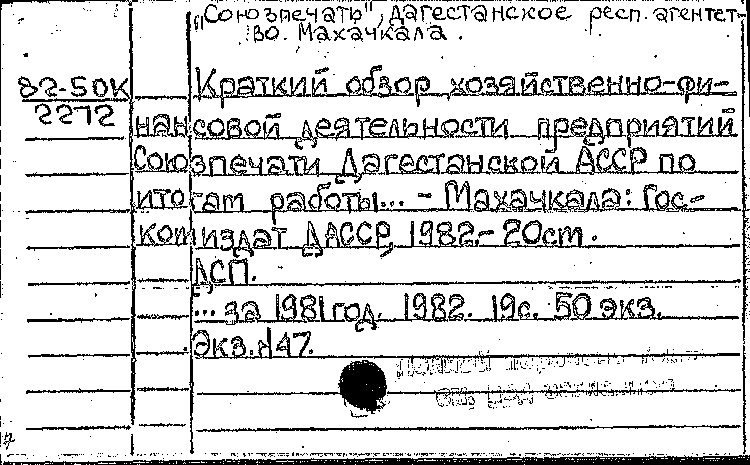 "Союзпечать", Дагестанское респ. агентст-
во. Махачкала.
82-50К
2272
Краткий обзор хозяйственно-фи-
нансовой деятельности предприятий
Союзпечати Дагестанской АССР по
итогам работы... - Махачкала: Гос-
комиздат ДАССР, 1982.- 20см.
ДСП.
... за 1981 год. 1982. 19с. 50 экз.
Экз. №47.